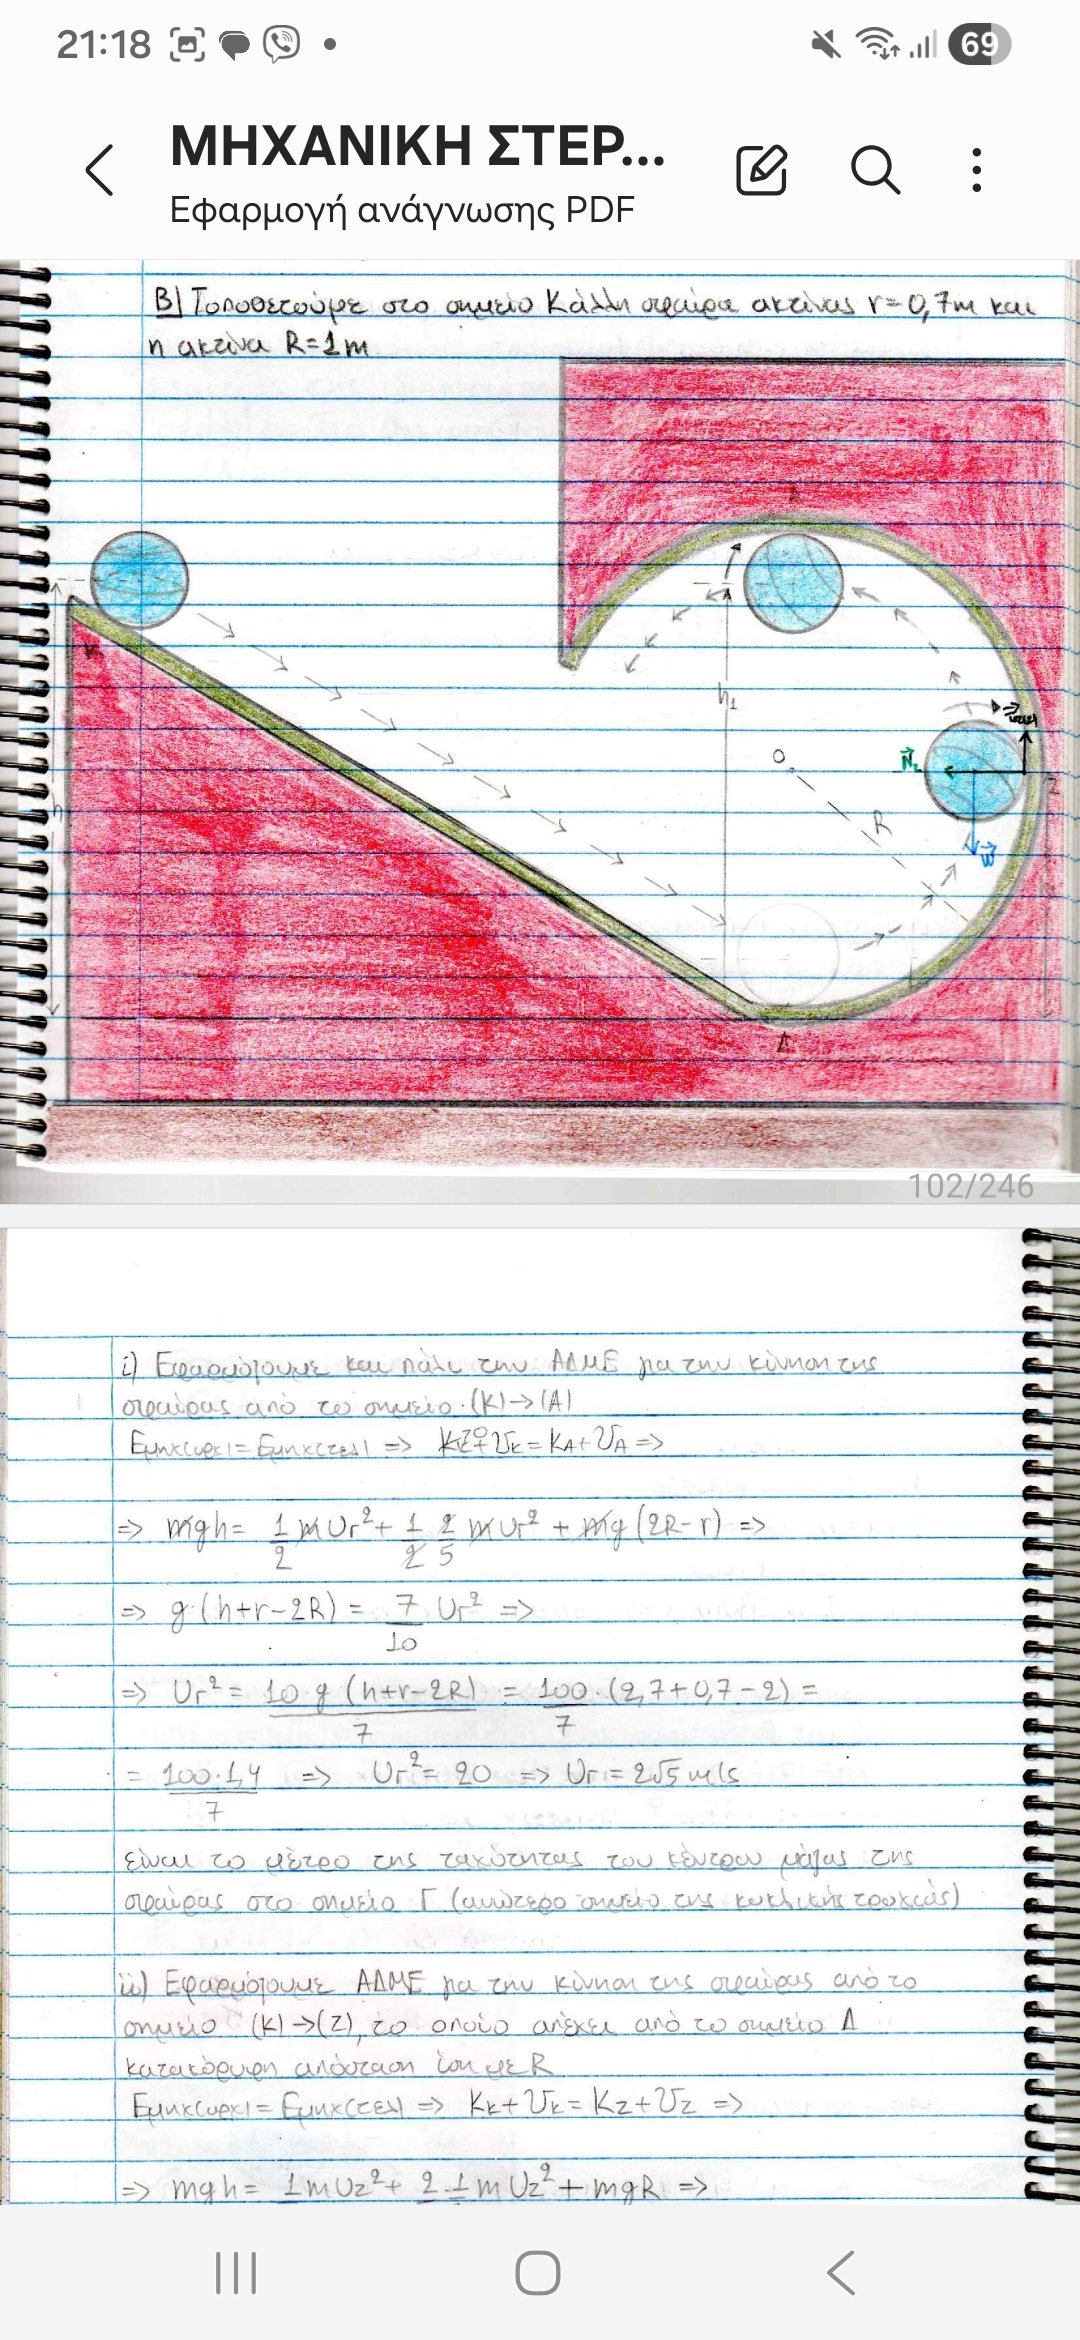 21:18
69
ΜΗΧΑΝΙΚΗ ΣΤΕΡ...
Εφαρμογή ανάγνωσης PDF
Β) Τοποθετούμε στο σημείο Κ άλλη σφαίρα ακτίνας r=0,7m και
η ακτίνα R=1m
h₁
O
R
N₂
W
h
K
Δ
Z
102/246
i) Εφαρμόζουμε και πάλι την ΑΔΜΕ για την κίνηση της
σφαίρας από το σημείο (Κ)→(Α)
Εμηχ(αρχ)=Εμηχ(τελ) => Kκ+Uκ=KA+UA =>
=> mgh= 1/2 mυr²+ 1/2 2/5 mυr² + mg (2R-r) =>
=> g (h+r-2R) = 7/10 υr² =>
=> υr² = 10 g (h+r-2R)/7 = 100/7 · (2,7+0,7-2) =
= 100·1,4/7 => υr² = 20 => υr = 2√5 m/s
είναι το μέτρο της ταχύτητας του κέντρου μάζας της
σφαίρας στο σημείο Γ (ανώτερο σημείο της κυκλικής τροχιάς)
ii) Εφαρμόζουμε ΑΔΜΕ για την κίνηση της σφαίρας από το
σημείο (Κ)→(Ζ), το οποίο απέχει από το σημείο Δ
κατακόρυφη απόσταση ίση με R
Εμηχ(αρχ)=Εμηχ(τελ) => Kκ+Uκ=KZ+UZ =>
=> mgh= 1 mυz²+ 2 1 mυz² + mgR =>